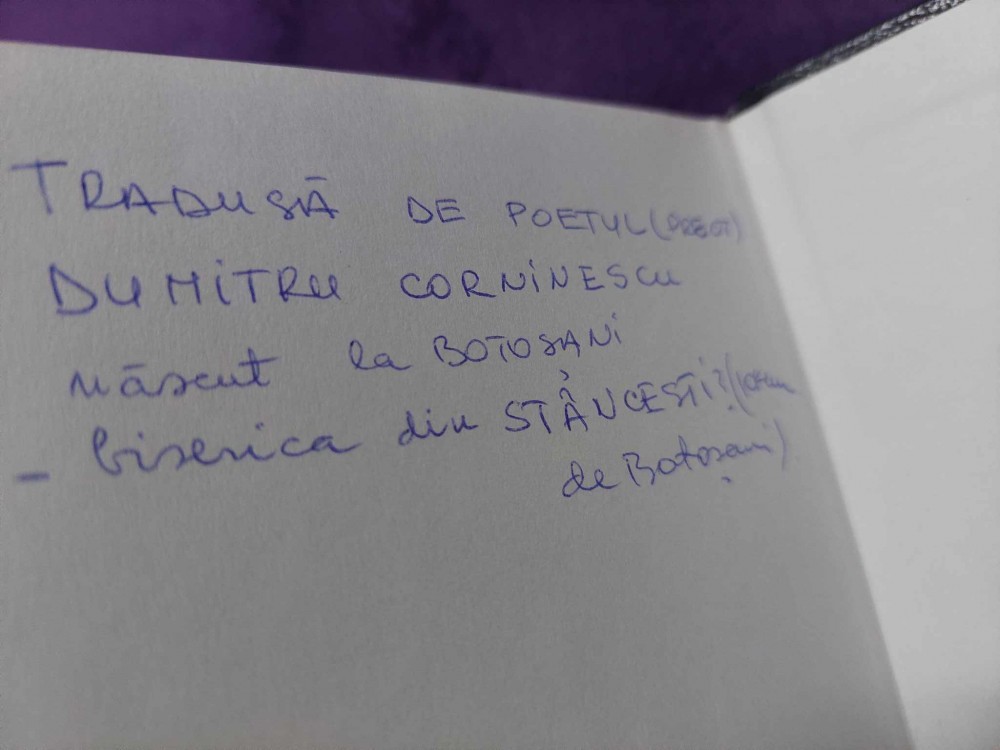 TRADUSĂ DE POETUL (PREOT)
DUMITRU CORNINESCU
născut la BOTOȘANI
- biserica din STÂNCEȘTI? (
de Botoșani)